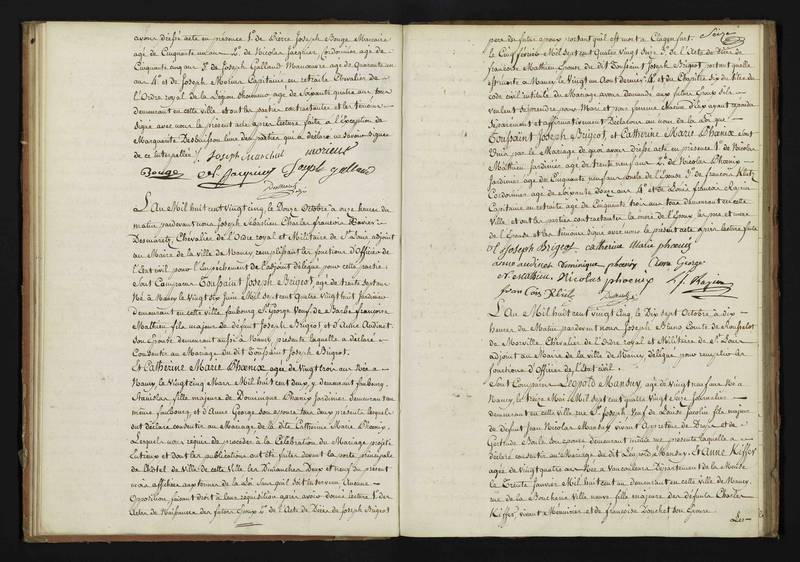 avons dressé acte en présence 1.º de Pierre Joseph Bouge Marcaire
agé de Cinquante un ans 2.º de Nicolas Jacquier, Cordonnier agé de
Cinquante cinq ans 3.º de Joseph Galland Manœuvre agé de quarante un
ans 4.º et de Joseph Morieux Capitaine en retraite Chevalier de
l'Ordre royal de la Légion d'honneur agé de soixante quatre ans tous
demeurant en cette ville et ont les parties contractantes et les témoins
signé avec nous le présent acte après lecture faite à l'Exception de
Marguerite l'une des parties qui a déclaré ne savoir signer
de ce interpellée / Joseph Marchal morieux
Bouge N. Jacquier Joseph galland
L'An Mil huit cent vingt cinq, le Douze Octobre à onze heures du
matin pardevant nous Joseph Sébastien Charles françois Xavier
Desmarets, Chevalier de l'Ordre royal et Militaire de St Louis adjoint
au Maire de la Ville de Nancy remplissant les fonctions d'Officier de
l'état civil pour l'empêchement de l'adjoint délégué pour cette partie
Sont Comparus Toussaint Joseph Brigeot agé de trente sept ans
Né à Nancy le Vingt six Juin Mil sept cent quatre vingt huit Jardinier
demeurant en cette ville faubourg St George Veuf de Barbe françoise
Mathieu fils majeur de défunt Joseph Brigeot et d'Anne Audinet
son Epouse demeurant aussi à Nancy présente laquelle a déclaré
Consentir au Mariage du dit Toussaint Joseph Brigeot.
Et Catherine Marie Phœnix agée de vingt trois ans Née à
Nancy le vingt cinq Mars Mil huit cent deux y demeurant faubourg
Stanislas, fille majeure de Dominique Phœnix Jardinier demeurant au
même faubourg et d'Anne George son épouse tous deux présents lesquels
ont déclaré consentir au Mariage de la dite Catherine Marie Phœnix.
Lesquels nous requis de procéder à la Célébration du Mariage projeté
entr'eux et dont les publications ont été faites devant la porte principale
de l'hôtel de Ville de cette Ville les Dimanches Deux et neuf du présent
mois affichées aux termes de la Loi sans qu'il soit intervenu Aucune
Opposition faisant droit à leur réquisition après avoir donné lecture 1.º des
Actes de Naissance des futurs Epoux 2.º de l'Acte de Décès de Joseph Brigeot
Seize
père du futur époux portant qu'il est mort à Clagenfurt.
le Cinq février Mil sept cent quatre vingt Onze 3.º de l'Acte de Décès de
françoise Mathieu Epouse du dit Toussaint Joseph Brigeot portant qu'elle
est morte à Nancy le Vingt un Aout dernier 4.º et du Chapitre Six du titre du
code civil intitulé du Mariage avons demandé aux futurs Epoux s'ils
veulent se prendre pour Mari et pour femme chacun d'Eux ayant répondu
séparément et affirmativement Déclarons au nom de la Loi que
Toussaint Joseph Brigeot et Catherine Marie Phœnix sont
Unis par le Mariage de quoi avons dressé acte en présence 1.º de Nicolas
Mathieu Jardinier agé de trente neuf ans 2.º de Nicolas Phœnix
Jardinier agé de Cinquante neuf ans oncle de l'Epouse 3.º de françois Klitz
Cordonnier agé de Soixante douze ans 4.º et de Louis françois Rapin
Capitaine en retraite agé de Cinquante trois ans tous demeurant en cette
Ville et ont les parties contractantes la mère de l'Epoux les père et mère
de l'Epouse et les témoins signé avec nous le présent acte après lecture faite
Joseph Brigeot catherine Marie phœnix
anne audinet Dominique phœnix Anne George
N Mathieu Nicolas phoenix
fran Cois Klitz L f. Rapin
L'An Mil huit cent vingt cinq, le Dix sept Octobre à dix
heures du Matin pardevant nous Joseph Bruno Comte de
de Morville Chevalier de l'Ordre royal et Militaire de St Louis
adjoint au Maire de la ville de Nancy délégué pour remplir les
fonctions d'Officier de l'état civil.
Sont Comparus Léopold Mansuy, agé de vingt neuf ans Né à
Nancy, le treize Mil sept cent quatre vingt seize Journalier
demeurant en cette ville rue St Joseph Veuf de Louise Jacolin fils majeur
de défunt Jean Nicolas Mansuy vivant Appréteur de Draps et de
Gertrude Barbe son épouse demeurant même rue présente laquelle a
déclaré consentir au Mariage du dit Léopold Mansuy. Et Anne Kiffer
agée de vingt quatre ans Née à Vaucouleurs Département de la Meuse
le Trente Janvier Mil huit cent un demeurant en cette ville de Nancy
rue de la Boucherie Ville neuve fille majeure des défunts Charles
Kiffer, vivant Menuisier et de françoise Douchet son épouse
Les